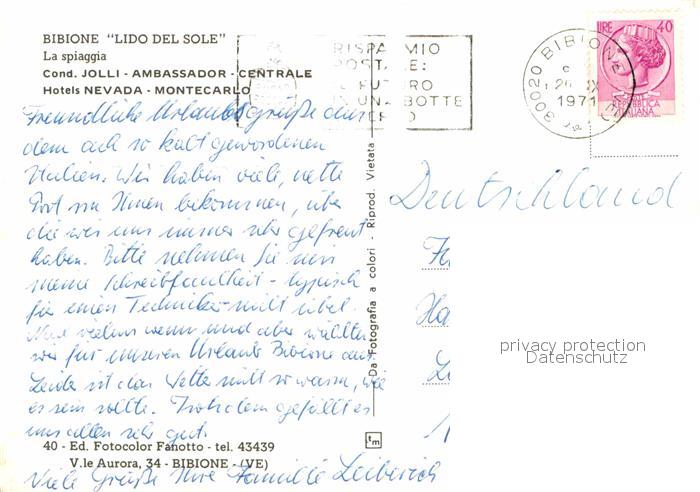 BIBIONE "LIDO DEL SOLE"
La spiaggia
Cond. JOLLI - AMBASSADOR - CENTRALE
Hotels NEVADA - MONTECARLO
RISPARMIO
POSTALE:
FUTURO
UNA BOTTE
30020 BIBIONE
26 IX
1971
LIRE 40
REPUBBLICA
ITALIANA
Freundliche Urlaubsgrüße aus
dem ach so kalt gewordenen
Italien. Wir haben viele, nette
Post von Ihnen bekommen, über
die wir uns immer sehr gefreut
haben. Bitte nehmen Sie mir
meine Schreibfaulheit - typisch
für einen Techniker - nicht übel.
wenn und aber wählten
wir für unseren Urlaub Bibione aus.
Leider ist das Wetter nicht so warm, wie
es sein sollte. Trotzdem gefällt es
uns allen sehr gut.
Viele Grüße Ihre Familie
Deutschland
Da Fotografia a colori - Riprod. Vietata
privacy protection
Datenschutz
tm
40 - Ed. Fotocolor Fanotto - tel. 43439
V.le Aurora, 34 - BIBIONE - (VE)